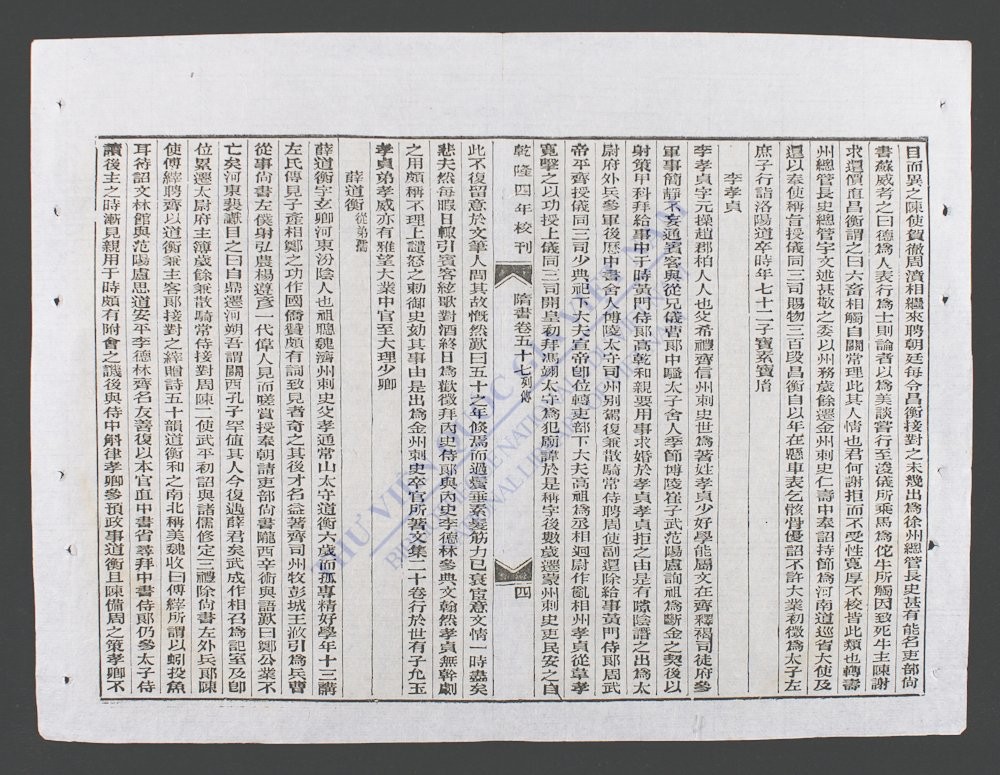 目而異之陳使賀徹周濆相繼來聘朝廷每令昌衡接對之未幾出為徐州總管長史甚有能名吏部尚
書蘇威考之曰德為人表行為士則論者以為美談嘗行至浚儀所乘馬為佗牛所觸因致死牛主陳謝
求還價直昌衡謂之曰六畜相觸自關常理此其人情也君何謝拒而不受性寬厚不校皆此類也轉壽
州總管長史總管宇文述甚敬之委以州務歲餘遷金州刺史仁壽中奉詔持節為河南道巡省大使及
還以奉使稱旨授儀同三司賜物三百段昌衡自以年在懸車表乞骸骨優詔不許大業初徵為太子左
庶子行詣洛陽道卒時年七十二子寶素寶胤
李孝貞
李孝貞字元操趙郡柏人人也父希禮齊信州刺史世為著姓孝貞少好學能屬文在齊釋褐司徒府參
軍事簡靜不妄通賓客與從兄儀曹郎中騷太子舍人季節博陵崔子武范陽盧詢祖為斷金之契後以
射策甲科拜給事中于時黃門侍郎高乾和親要用事求婚於孝貞孝貞拒之由是有隙陰譖之出為太
尉府外兵參軍後歷中書舍人博陵太守司州別駕復兼散騎常侍聘周使副還除給事黃門侍郎周武
帝平齊授儀同三司少典祀下大夫宣帝即位轉吏部下大夫高祖為丞相迥尉作亂相州孝貞從韋孝
寬擊之以功授上儀同三司開皇初拜馮翊太守為犯廟諱於是稱字後數歲遷蒙州刺史吏民安之自
乾隆四年校刊
隋書卷五十七列傳
四
此不復留意於文筆人間其故慨然歎曰五十之年倏焉而過鬢垂素髮筋力已衰宦意文情一時盡矣
悲夫然每暇日輒引賓客絃歌對酒終日為歡徵拜內史侍郎與內史李德林參典文翰然孝貞無幹劇
之用頗稱不理上譴怒之勅御史劾其事由是出為金州刺史卒官所著文集二十卷行於世有子允玉
孝貞弟孝威亦有雅望大業中官至大理少卿
薛道衡從弟孺
薛道衡字玄卿河東汾陰人也祖聰魏濟州刺史父孝通常山太守道衡六歲而孤專精好學年十三講
左氏傳見子產相鄭之功作國僑贊頗有詞致見者奇之其後才名益著齊司州牧彭城王浟引為兵曹
從事尚書左僕射弘農楊遵彥一代偉人見而嗟賞授奉朝請吏部尚書隴西辛術與語歎曰鄭公業不
亡矣河東裴讞目之曰自鼎遷河朔吾謂關西孔子罕值其人今復遇薛君矣武成作相召為記室及即
位累遷太尉府主簿歲餘兼散騎常侍接對周陳二使武平初詔與諸儒修定三禮除尚書左外兵郎陳
使傅縡聘齊以道衡兼主客郎接對之縡贈詩五十韻道衡和之南北稱美魏收曰傅縡所謂以蚓投魚
耳待詔文林館與范陽盧思道安平李德林齊名友善復以本官直中書省尋拜中書侍郎仍參太子侍
讀後主之時漸見親用于時頗有附會之譏後與侍中斛律孝卿參預政事道衡具陳備周之策孝卿不